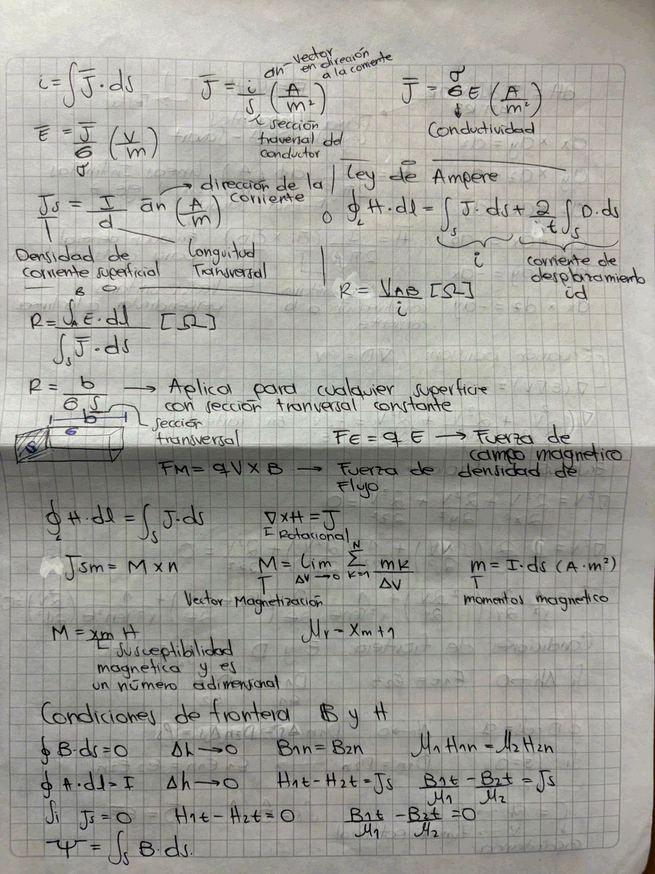 i = ∫ J̄ · ds
J̄ = i/s an (A/m²)
vector en direción a la corriente
sección traversal del conductor
J̄ = σ E (A/m²)
Conductividad
Ē = J̄/σ (V/m)
Js = I/d ān (A/m)
dirección de la corriente
Densidad de corriente superficial
Longuitud Transversal
Ley de Ampere
∮L H · dl = ∫s J · ds + ∂/t ∫s D · ds
i
corriente de desplazamiento id
R = VAB/i [Ω]
R = ∫A^B E · dl / ∫s J̄ · ds [Ω]
R = b/(σ S) → Aplica para cualquier superficie
con sección tranversal constante
b
σ
S
sección transversal
FE = q E → Fuerza de campo magnetico
FM = q V × B → Fuerza de densidad de Flujo
∮L H · dl = ∫s J · ds
∇ × H = J
Rotacional
Jsm = M × n
M = Lim ΔV → 0 Σ k=1 N mk/ΔV
Vector Magnetización
m = I · ds (A · m²)
momentos magnetico
M = xm H
susceptibilidad
magnetica y es
un número adimensional
μr = Xm + 1
Condiciones de frontera B y H
∮ B · ds = 0 Δh → 0 B1n = B2n μ1 H1n = μ2 H2n
∮ H · dl = I Δh → 0 H1t - H2t = Js B1t/μ1 - B2t/μ2 = Js
Si Js = 0 H1t - H2t = 0 B1t/μ1 - B2t/μ2 = 0
Ψ = ∫s B · ds.